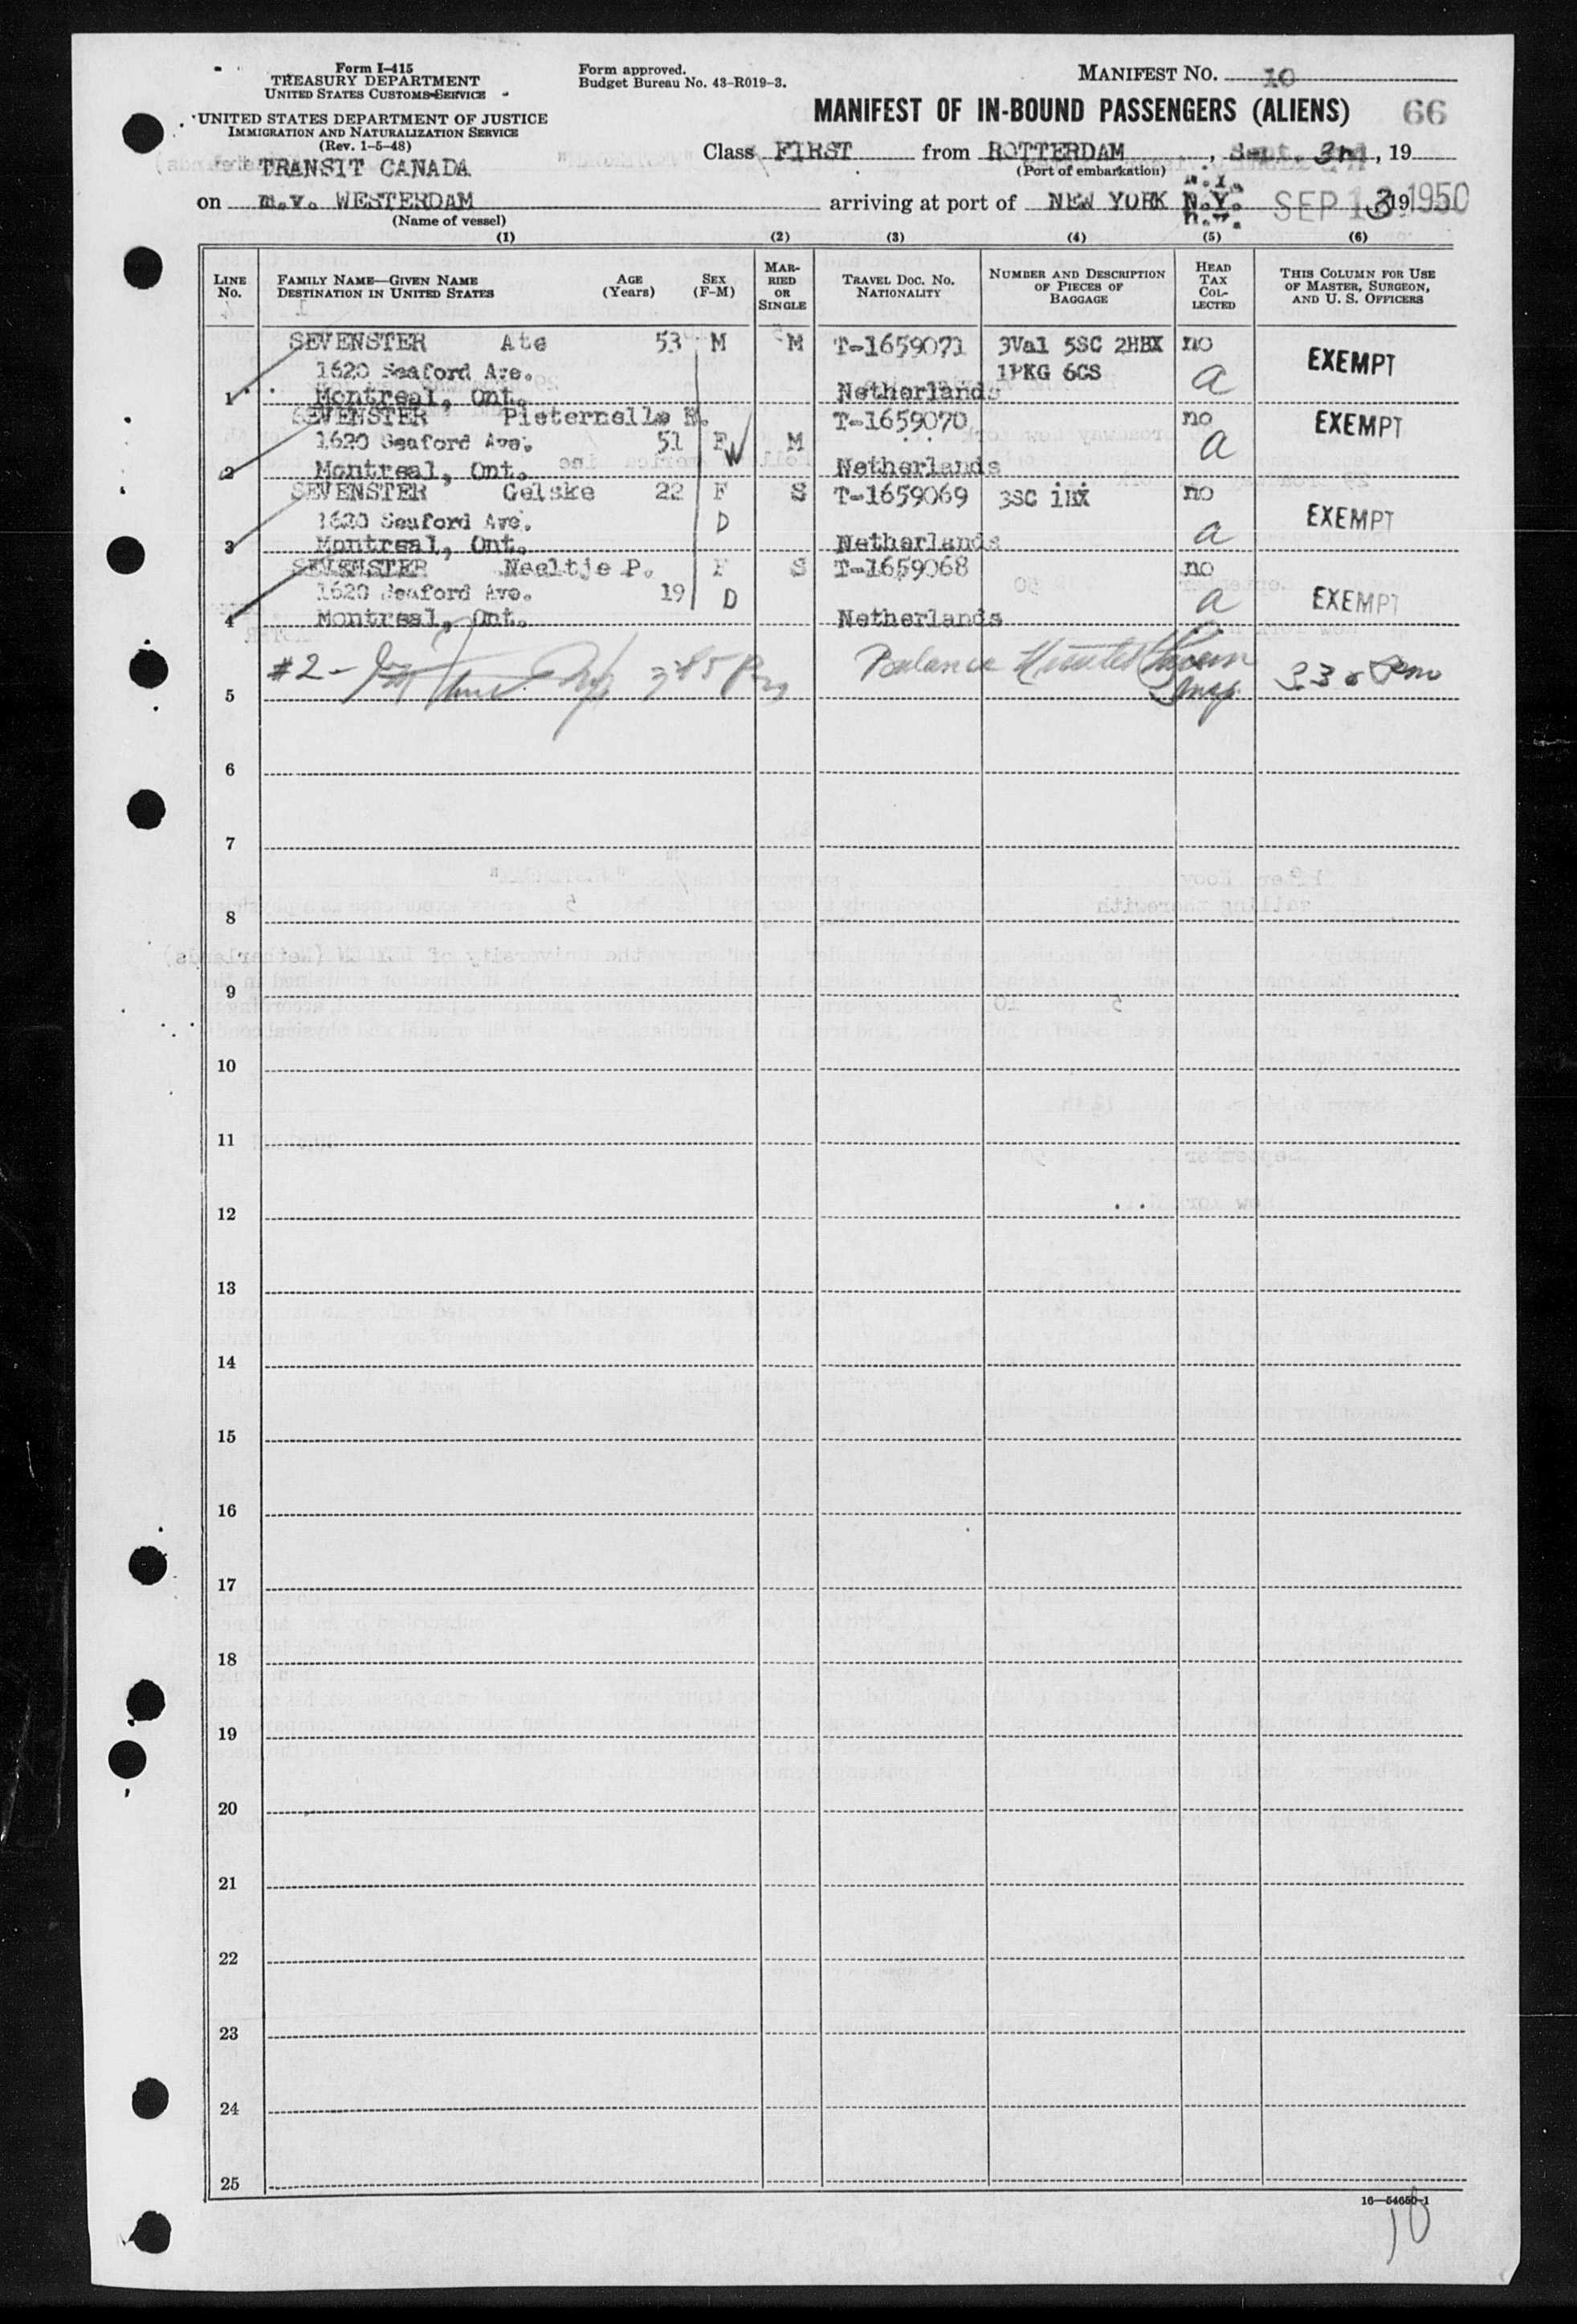 Form I-415
TREASURY DEPARTMENT
UNITED STATES CUSTOMS SERVICE
UNITED STATES DEPARTMENT OF JUSTICE
IMMIGRATION AND NATURALIZATION SERVICE
(Rev. 1-5-48)
TRANSIT CANADA
Form approved.
Budget Bureau No. 43-R019-3.
MANIFEST NO. 10
MANIFEST OF IN-BOUND PASSENGERS (ALIENS) 66
Class FIRST from ROTTERDAM, Sept. 3rd, 19
(Port of embarkation)
on m.v. WESTERDAM arriving at port of NEW YORK N.Y. SEP 13 19 1950
(Name of vessel)
(1) (2) (3) (4) (5) (6)
LINE NO. FAMILY NAME—GIVEN NAME DESTINATION IN UNITED STATES AGE (Years) SEX (F-M) MARRIED OR SINGLE TRAVEL DOC. NO. NATIONALITY NUMBER AND DESCRIPTION OF PIECES OF BAGGAGE HEAD TAX COLLECTED THIS COLUMN FOR USE OF MASTER, SURGEON, AND U. S. OFFICERS
SEVENSTER Ate 53 M M T-1659071 3Val 5SC 2HBX no EXEMPT
1620 Seaford Ave. 1PKG 6CS a
1 Montreal, Ont. Netherlands
SEVENSTER Pieternella T-1659070 no EXEMPT
1620 Seaford Ave. 51 F W M a
2 Montreal, Ont. Netherlands
SEVENSTER Gelske 22 F S T-1659069 3SC 1HX no EXEMPT
1620 Seaford Ave. D a
3 Montreal, Ont. Netherlands
SEVENSTER Neeltje P. F S T-1659068 no EXEMPT
1620 Seaford Ave. 19 D a
4 Montreal, Ont. Netherlands
#2 - Balance
5
6
7
8
9
10
11
12
13
14
15
16
17
18
19
20
21
22
23
24
25
16—54650-1
10